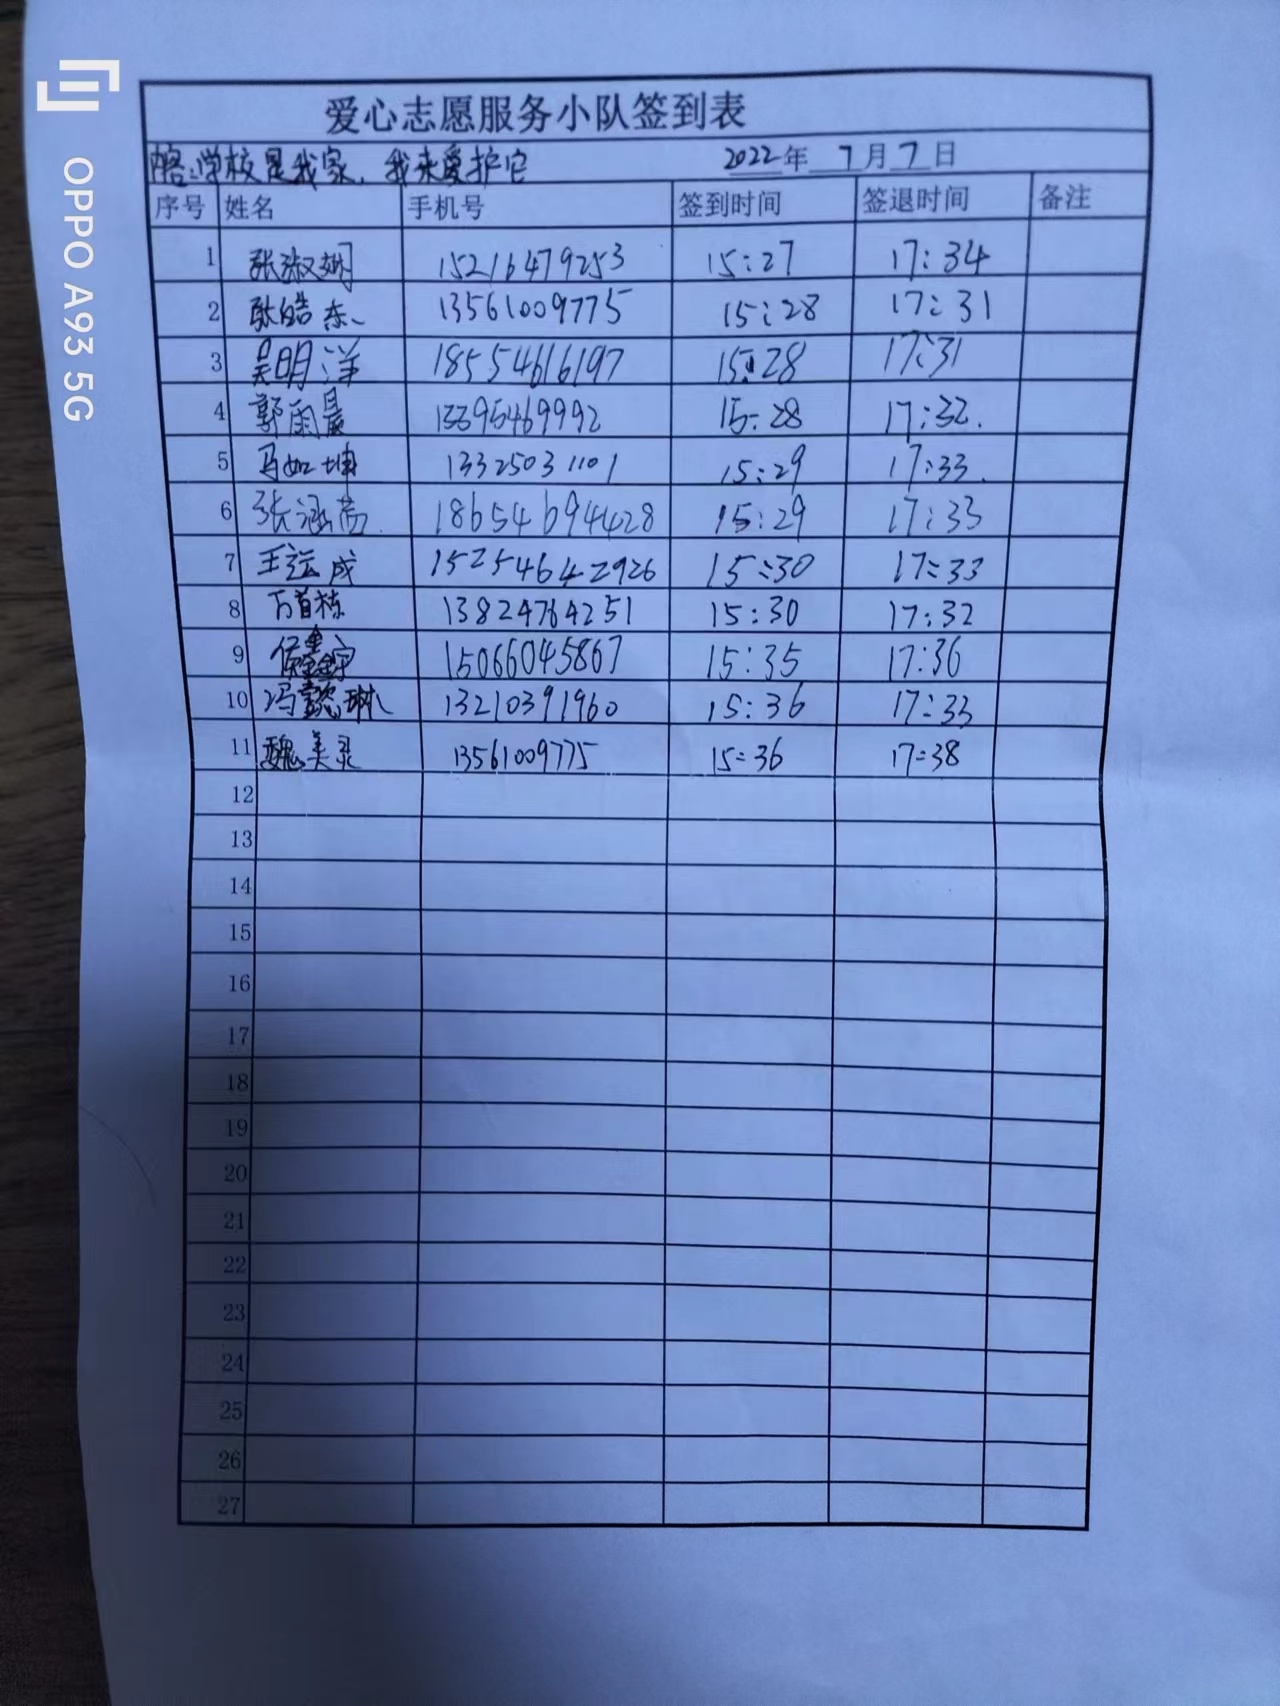 OPPO A93 5G
爱心志愿服务小队签到表
学校是我家,我来爱护它 2022年 7月7日
序号 姓名 手机号 签到时间 签退时间 备注
1 张淑娴 15216479253 15:27 17:34
2 耿皓东 13561009775 15:28 17:31
3 吴明洋 18554616197 15:28 17:31
4 郭雨晨 13395469992 15:28 17:32.
5 马如坤 13325031101 15:29 17:33.
6 张涵 18654694428 15:29 17:33
7 王运成 15254642926 15:30 17:33
8 万首栋 13824764251 15:30 17:32
9 15066045867 15:35 17:36
10 冯懿琳 13210391960 15:36 17:33
11 魏美灵 13561009775 15:36 17:38
12
13
14
15
16
17
18
19
20
21
22
23
24
25
26
27